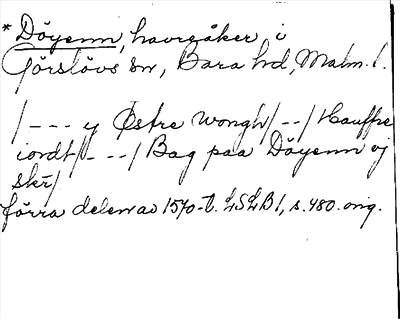 * Döyenn, havreåker i
Görslövs sn, Bara hd, Malm. l.
/--- y Østre wongh/--/Hauffre
iordt/---/Bag paa Döyenn vj
skr/
förra delen av 1570-t. LSLB 1, s. 480. orig.